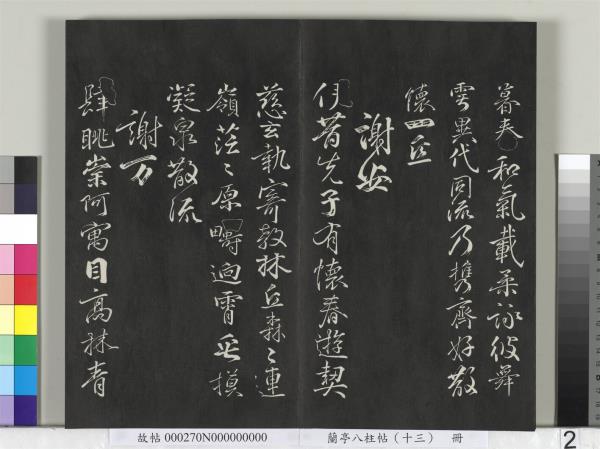 暮春和氣載柔詠彼舞
雩異代同流乃攜齊好散
懷丘
謝安
伊昔先子有懷春遊契
茲言執寄敖林丘森〻連
嶺茫〻原疇迥霄垂
凝泉散流
謝万
肆眺崇阿寓目高林青
故帖 000270N000000000 蘭亭八柱帖（十三） 冊
2